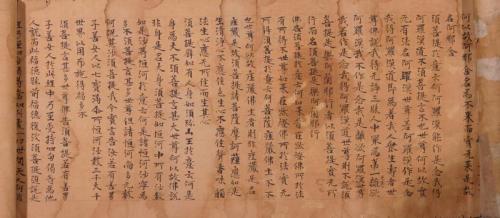 何以故阿那含名為不來而實无來是故
名阿那含
須菩提於意云何阿羅漢能作是念我得
阿羅漢道不須菩提言不也世尊何以故實
无有法名阿羅漢世尊若阿羅漢作是念
我得阿羅漢道即為著我人眾生壽者世
尊佛說我得无諍三昧人中最為第一是第一離欲
阿羅漢我不作是念我是離欲阿羅漢世尊
我若作是念我得阿羅漢道世尊則不說須
菩提是樂阿蘭那行者以須菩提實无所
行而名須菩提是樂阿蘭那行
佛告須菩提於意云何如來昔在然燈佛所於法
有所得不世尊如來在然燈佛所於法實无
所得須菩提於意云何菩薩莊嚴佛土不不
也世尊何以故莊嚴佛土者則非莊嚴是名
莊嚴是故須菩提諸菩薩摩訶薩應如是
生清淨心不應住色生心不應住聲香味觸
法生心應无所住而生其心
須菩提譬如有人身如須彌山王於意云何是
身為大不須菩提言甚大世尊何以故佛說
非身是名大身須菩提如恒河中所有沙數
如是沙等恒河於意云何是諸恒河沙寧為
多不須菩提言甚多世尊但諸恒河尚多无數
何況其沙須菩提我今實言告汝若有善男
子善女人以七寶滿爾所恒河沙數三千大千
世界以用布施得福多不
須菩提言甚多世尊佛告須菩提若善男
子善女人於此經中乃至受持四句偈等為他
人說而此福德勝前福德復次須菩提隨說是